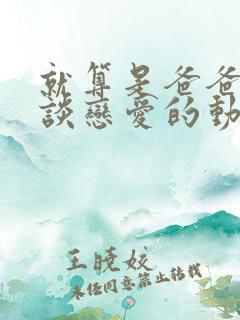 就算是爸爸
談戀愛的動
王曉姣
未经同意禁止转载